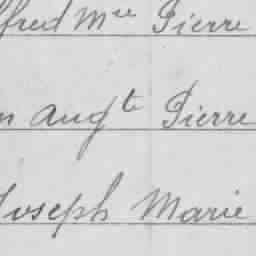 lfred Mie Pierre
n Augte Pierre
Joseph Marie